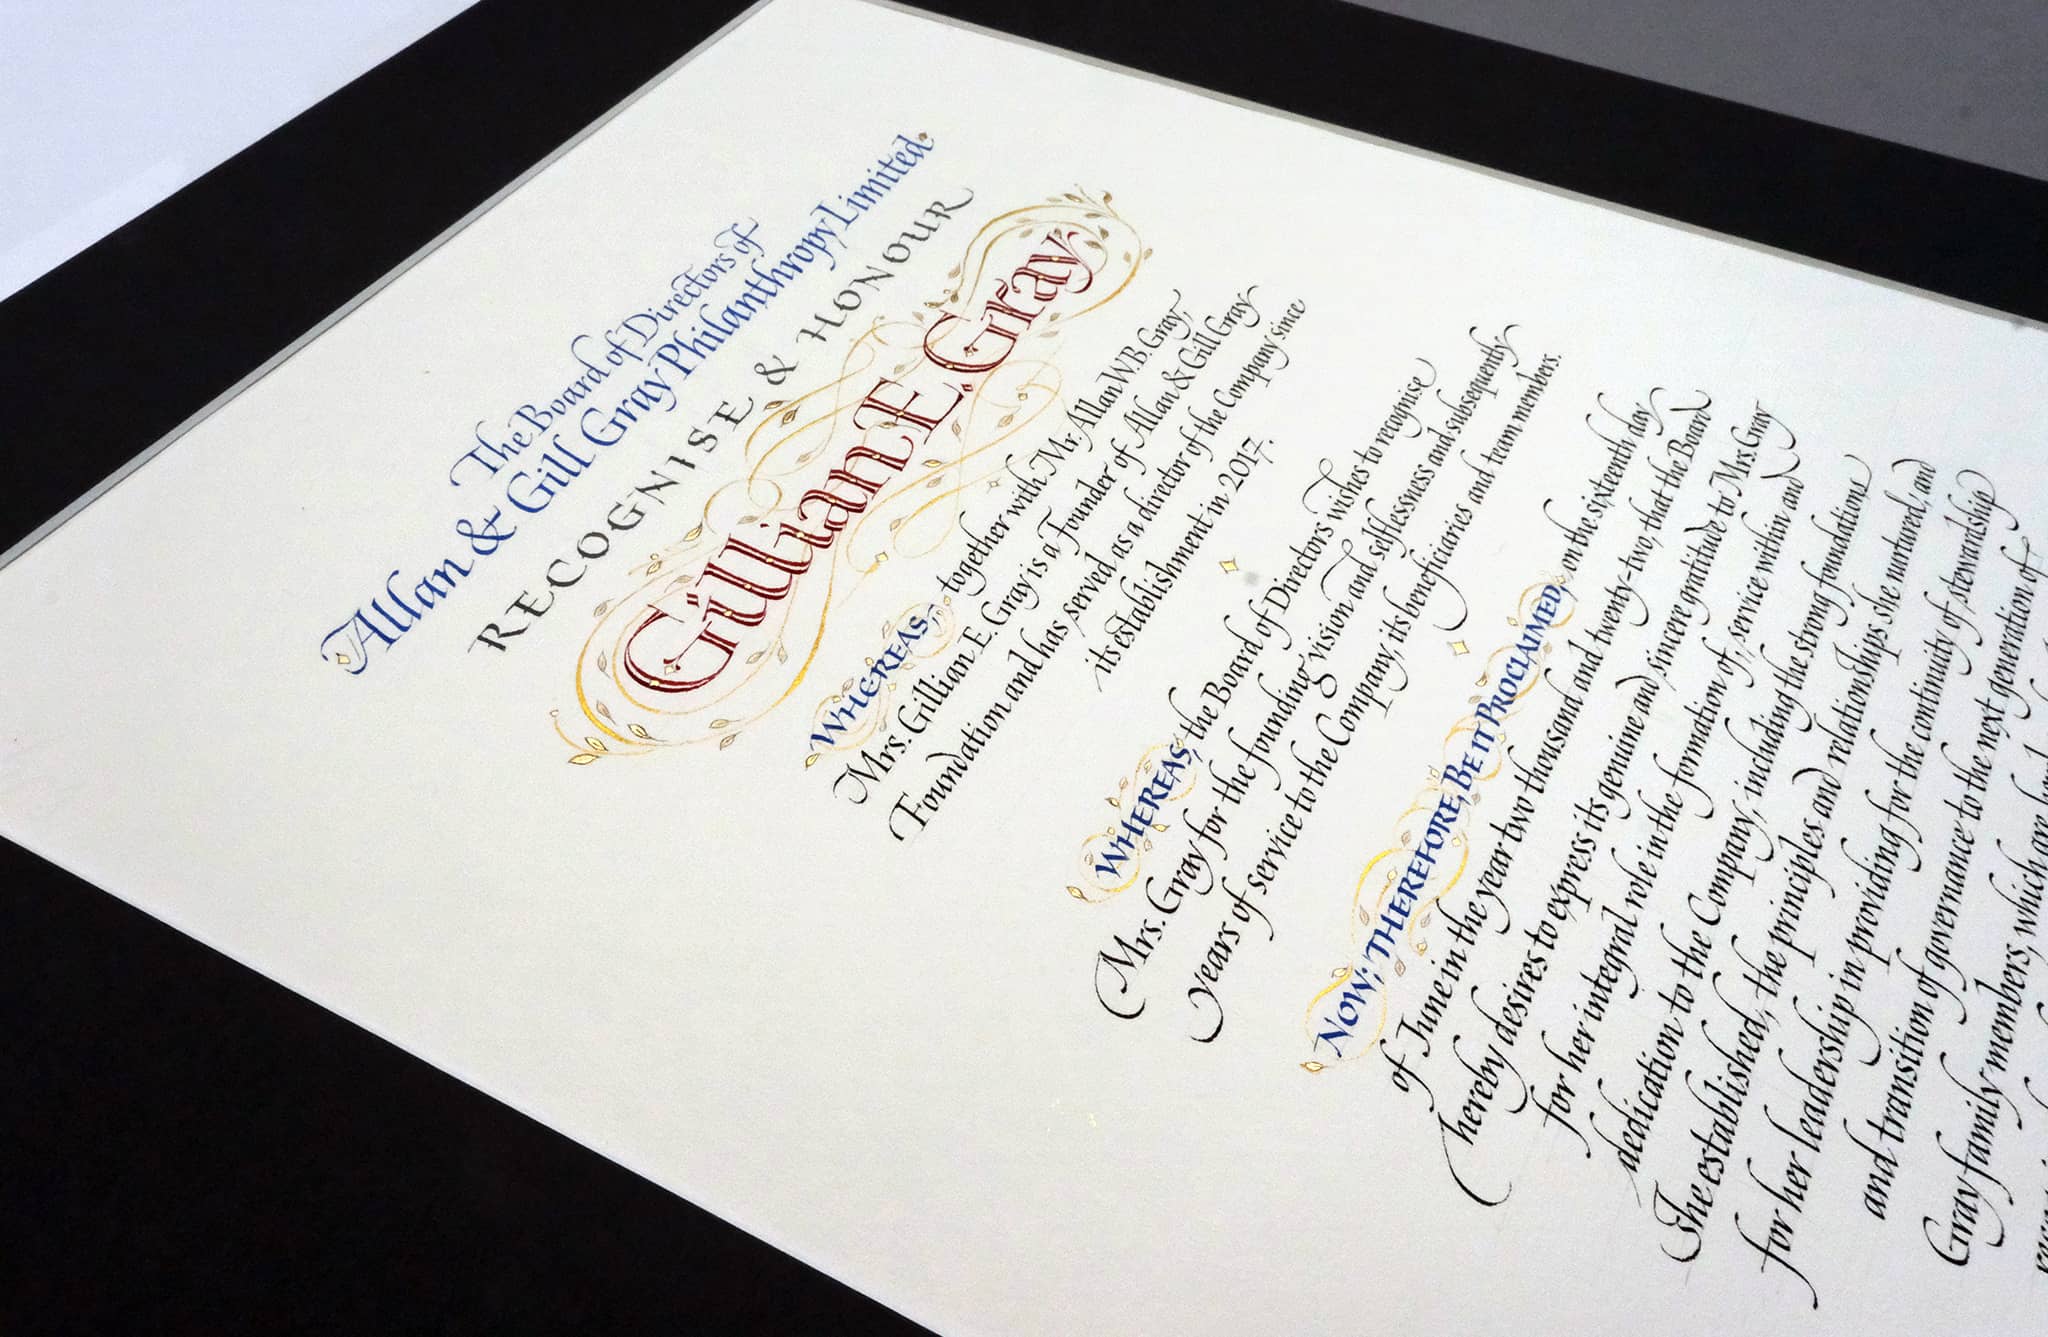 The Board of Directors of
Allan & Gill Gray Philanthropy Limited
RECOGNISE & HONOUR
Gillian E. Gray
WHEREAS, together with Mr. Allan W.B. Gray,
Mrs. Gillian E. Gray is a Founder of Allan & Gill Gray
Foundation and has served as a director of the Company since
its establishment in 2017.
WHEREAS, the Board of Directors wishes to recognise
Mrs. Gray for the founding vision and selflessness and subsequently
years of service to the Company, its beneficiaries and team members.
NOW, THEREFORE, BE IT PROCLAIMED, on the sixteenth day
of June in the year two thousand and twenty-two, that the Board
hereby desires to express its genuine and sincere gratitude to Mrs. Gray
for her integral role in the formation of, service within and
dedication to the Company, including the strong foundations
she established, the principles and relationships she nurtured, and
for her leadership in providing for the continuity of stewardship
and transition of governance to the next generation of
Gray family members, which are